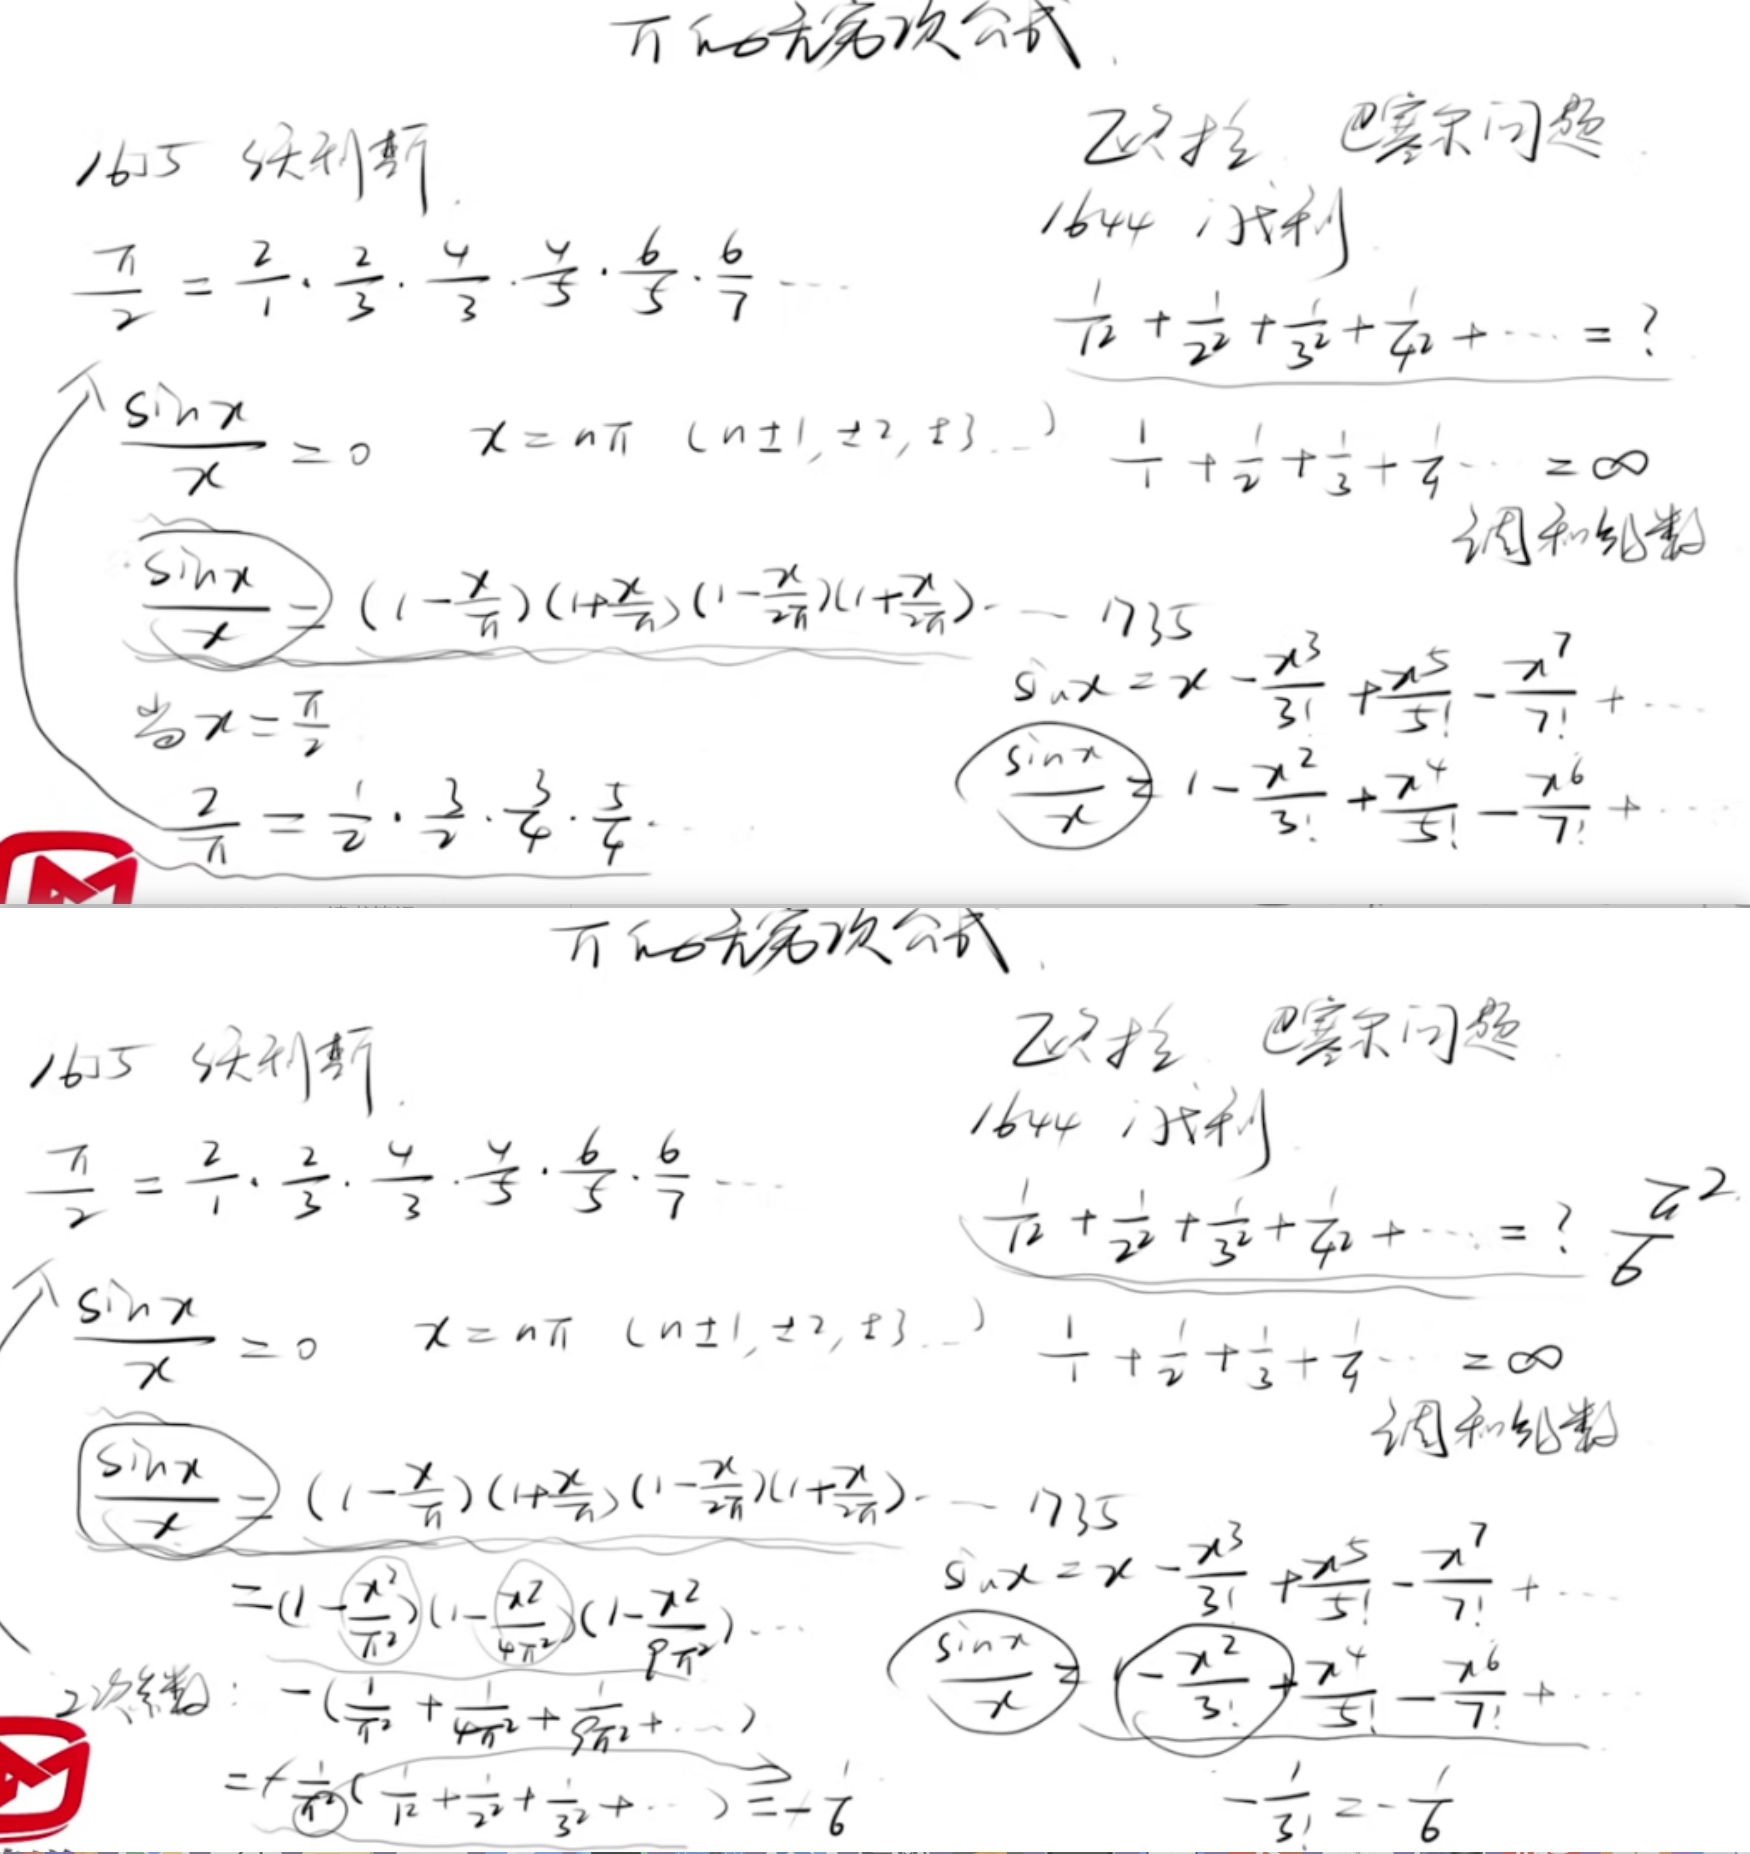 π的无穷次公式
1655 沃利斯
π/2 = 2/1 · 2/3 · 4/3 · 4/5 · 6/5 · 6/7 ····
sinx/x = 0 x = nπ (n±1, ±2, ±3…)
sinx/x = (1-x/π)(1+x/π)(1-x/2π)(1+x/2π)····
当x=π/2
2/π = 1/2 · 3/2 · 3/4 · 5/4 ····
欧拉 巴塞尔问题
1644
1/1² + 1/2² + 1/3² + 1/4² + ···· = ?
1/1 + 1/2 + 1/3 + 1/4 ···· = ∞
调和级数
1735
sinx = x - x³/3! + x⁵/5! - x⁷/7! + ····
sinx/x = 1 - x²/3! + x⁴/5! - x⁶/7! + ····
π的无穷次公式
1655 沃利斯
π/2 = 2/1 · 2/3 · 4/3 · 4/5 · 6/5 · 6/7 ····
sinx/x = 0 x = nπ (n±1, ±2, ±3…)
sinx/x = (1-x/π)(1+x/π)(1-x/2π)(1+x/2π)····
=(1-x²/π²)(1-x²/4π²)(1-x²/9π²)····
2次系数: -(1/π² + 1/4π² + 1/9π² + ····)
= -1/π²(1/1² + 1/2² + 1/3² + ····) = -1/6
欧拉 巴塞尔问题
1644
1/1² + 1/2² + 1/3² + 1/4² + ···· = ? π²/6
1/1 + 1/2 + 1/3 + 1/4 ···· = ∞
调和级数
1735
sinx = x - x³/3! + x⁵/5! - x⁷/7! + ····
sinx/x = - x²/3! + x⁴/5! - x⁶/7! + ····
-1/3! = -1/6